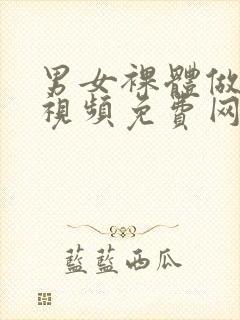 男女裸體做
視頻免費网
藍藍西瓜